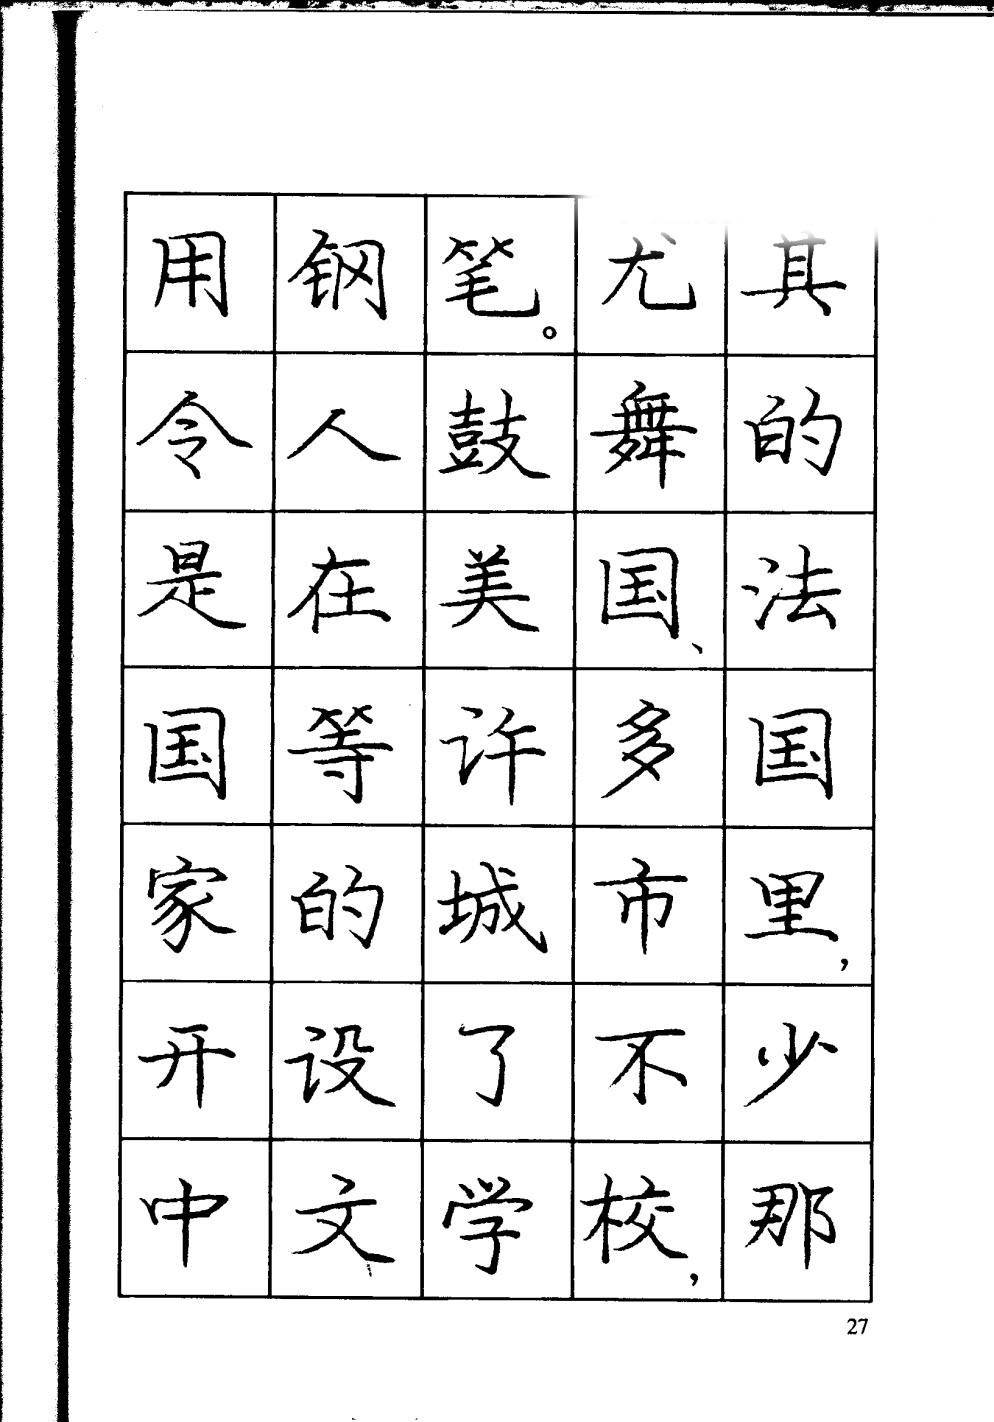 用钢笔。尤其
令人鼓舞的
是在美国、法
国等许多国
家的城市里，
开设了不少
中文学校，那
27